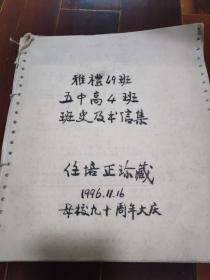 雅禮69班
五中高4班
班史及书信集
任培正珍藏
1996.11.16
母校九十周年大庆